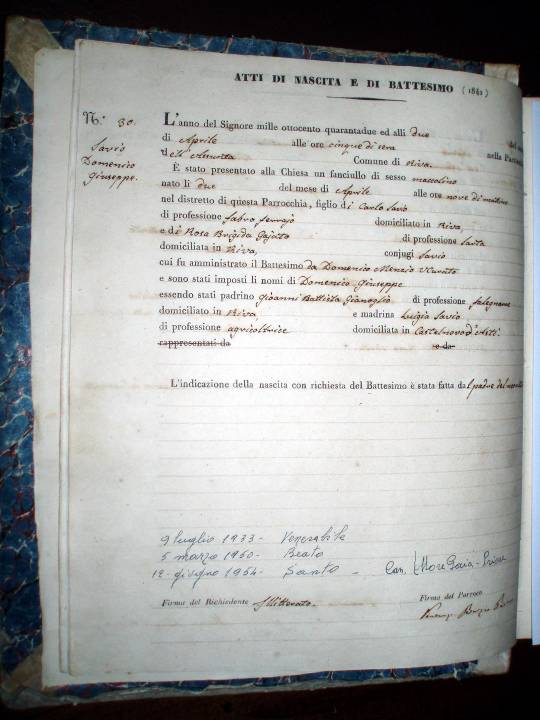 ATTI DI NASCITA E DI BATTESIMO (1842)
N.° 30.
Savio
Domenico
Giuseppe.
L'anno del Signore mille ottocento quarantadue ed alli due del
di Aprile alle ore cinque di sera nella Parroc
d Comune di Riva.
È stato presentato alla Chiesa un fanciullo di sesso mascolino
nato li due del mese di Aprile alle ore nove di mattino
nel distretto di questa Parrocchia, figlio di Carlo Savio
di professione fabro ferrajo domiciliato in Riva,
e di Rosa Brigida Gajato di professione Sarta
domiciliata in Riva, conjugi Savio
cui fu amministrato il Battesimo da Domenico Menzio Vcurato
e sono stati imposti li nomi di Domenico Giuseppe
essendo stati padrino Gioanni Battista di professione
domiciliato in Riva, e madrina Luigia Savio
di professione agricoltrice domiciliata in Castelnovo d'Asti
rappresentati da e da
L'indicazione della nascita con richiesta del Battesimo è stata fatta da l padre del
9 luglio 1933 - Venerabile
5 marzo 1950 - Beato
12 giugno 1954 - Santo - Can.
Firma del Richiedente Illitterato. Firma del Parroco